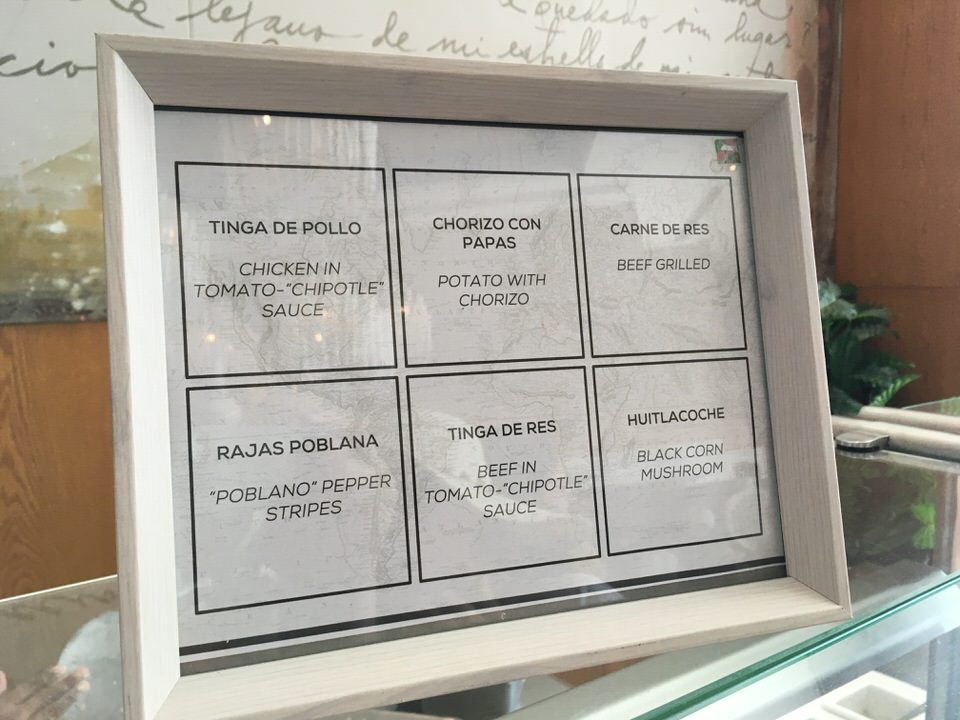 lejano de mi estrella de mi
quedado sin lugar?
TINGA DE POLLO
CHICKEN IN
TOMATO-"CHIPOTLE"
SAUCE
CHORIZO CON
PAPAS
POTATO WITH
CHORIZO
CARNE DE RES
BEEF GRILLED
RAJAS POBLANA
"POBLANO" PEPPER
STRIPES
TINGA DE RES
BEEF IN
TOMATO-"CHIPOTLE"
SAUCE
HUITLACOCHE
BLACK CORN
MUSHROOM